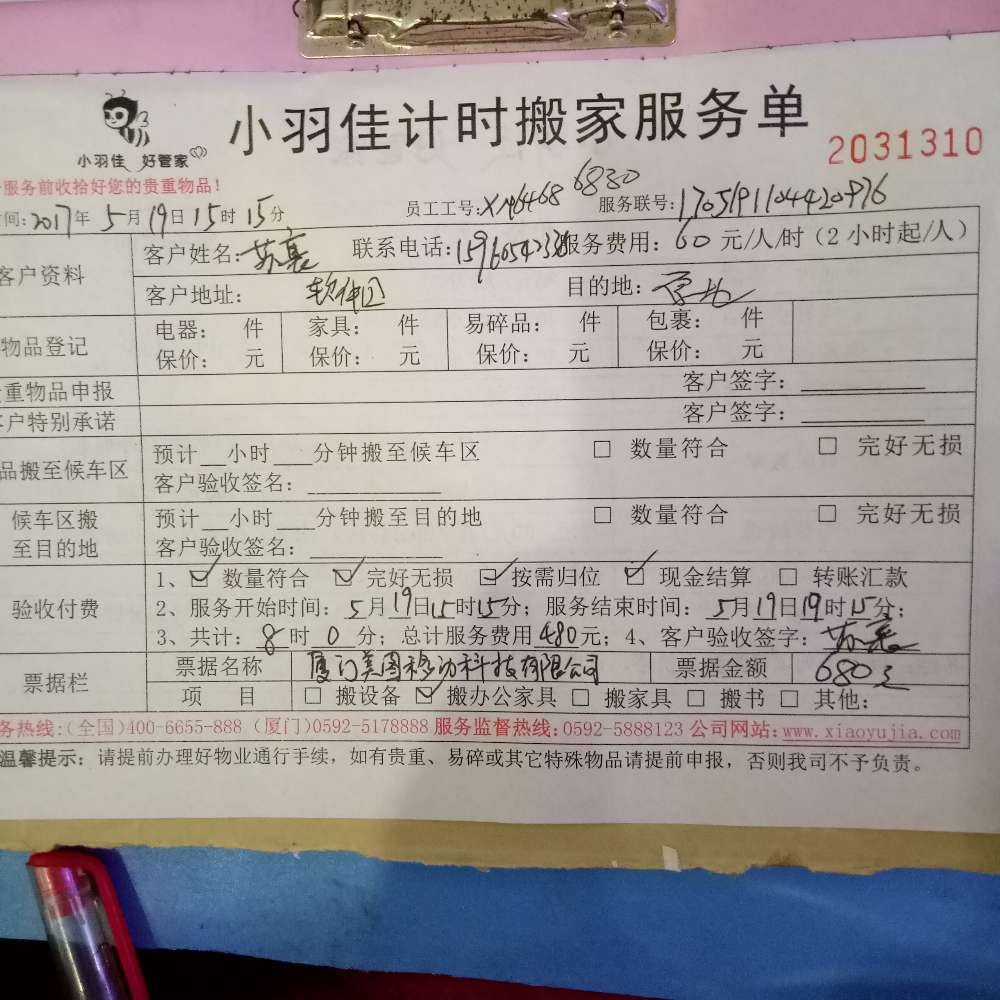 小羽佳计时搬家服务单
小羽佳 好管家
2031310
服务前收拾好您的贵重物品！
间：2017年5月19日15时15分 员工工号：XM6468 6830 服务联号：1705191104420976
客户资料 客户姓名： 联系电话： 服务费用：60元/人/时（2小时起/人）
客户地址：软件园 目的地：
物品登记 电器： 件 家具： 件 易碎品： 件 包裹： 件
保价： 元 保价： 元 保价： 元 保价： 元
重物品申报 客户签字：
户特别承诺 客户签字：
品搬至候车区 预计__小时___分钟搬至候车区 □ 数量符合 □ 完好无损
客户验收签名：
候车区搬至目的地 预计__小时___分钟搬至目的地 □ 数量符合 □ 完好无损
客户验收签名：
验收付费 1、☑ 数量符合 ☑ 完好无损 ☑ 按需归位 ☑ 现金结算 □ 转账汇款
2、服务开始时间：5月19日15时15分；服务结束时间：5月19日19时15分；
3、共计：8时0分；总计服务费用480元；4、客户验收签字：
票据栏 票据名称 厦门美图移动科技有限公司 票据金额 680元
项 目 □ 搬设备 ☑ 搬办公家具 □ 搬家具 □ 搬书 □ 其他：
务热线：(全国)400-6655-888 (厦门)0592-5178888 服务监督热线：0592-5888123 公司网站：www.xiaoyujia.com
温馨提示：请提前办理好物业通行手续，如有贵重、易碎或其它特殊物品请提前申报，否则我司不予负责。